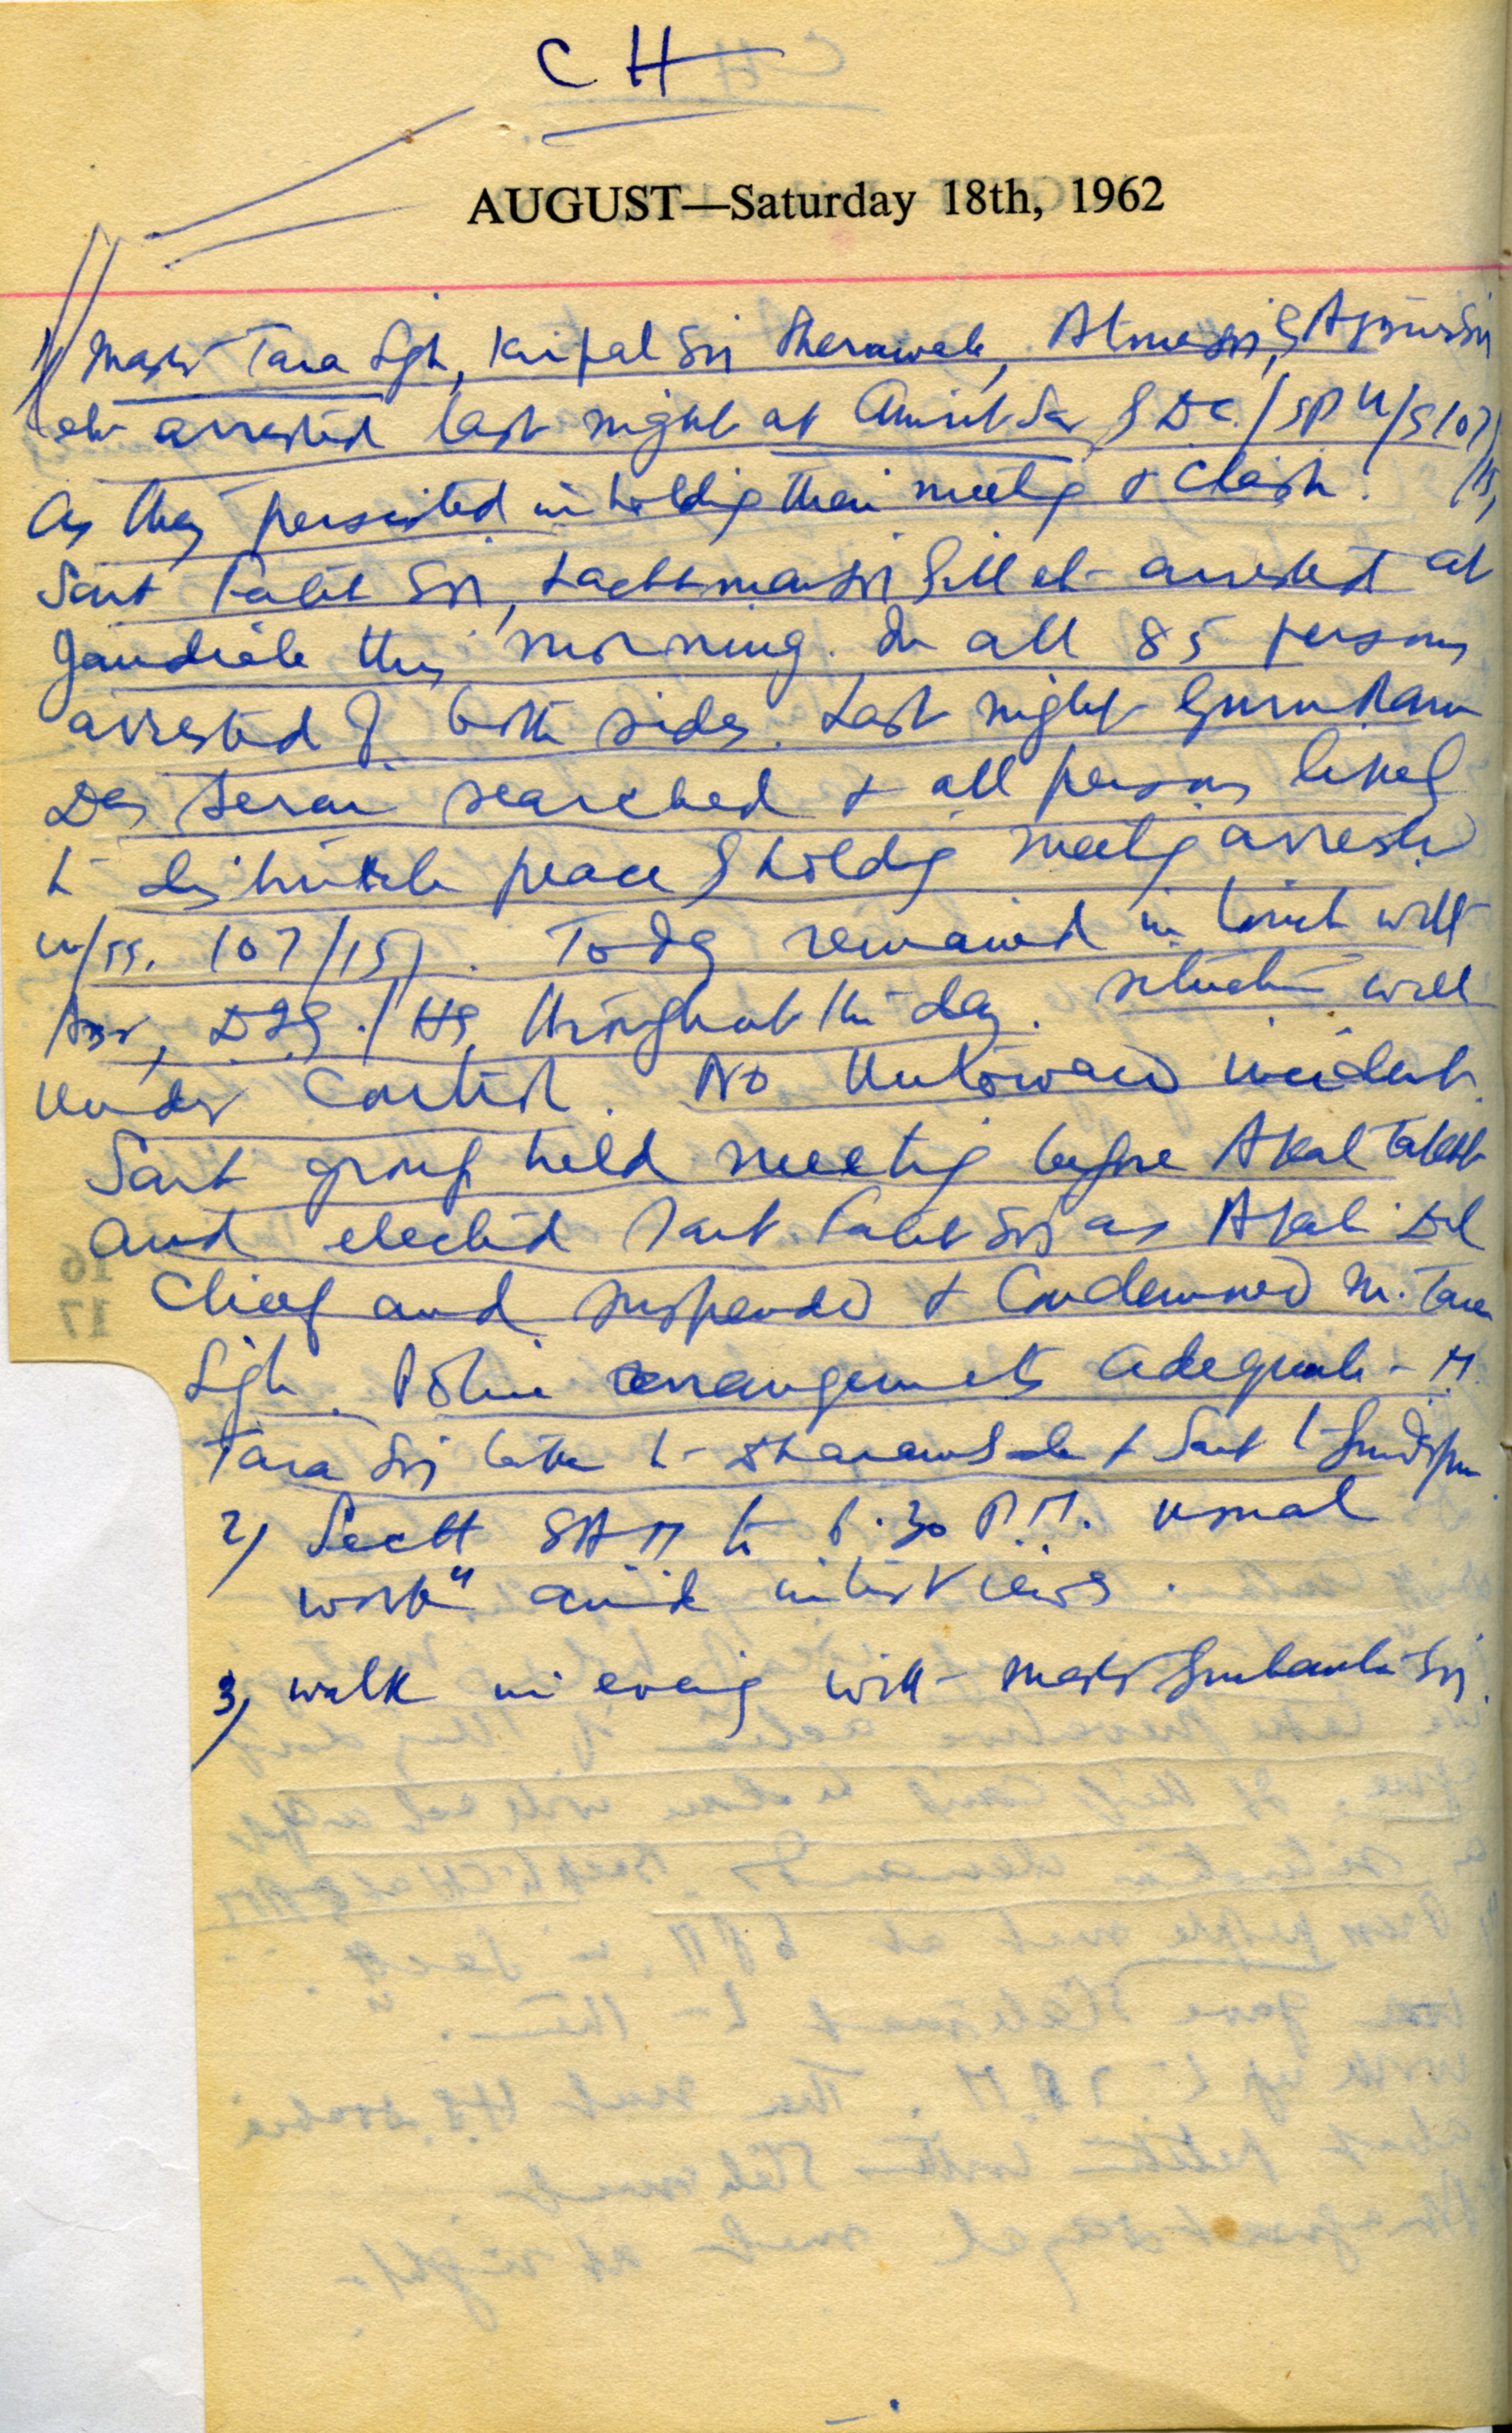 CH
AUGUST—Saturday 18th, 1962
1) Master Tara Sgh, Kirpal Sn
etc arrested last night at Amritsar DC/SP U/S 107/
151,
As they persisted in holding their meeting & clash.
Sant Fateh Sn, Lachhman Sn Gill etc arrested at
Jandiala this morning. In all 85 persons
arrested of both sides. Last night Guru Ram
Das Serai searched & all persons likely
to peace & holding meeting arrested
u/ss. 107/151. Today remained in touch with
Asr, DIG/HS, throughout the day. situation well
under control. No untoward incident.
Sant group held meeting before Akal Takht
and elected Sant Fateh Sn as Akali Dal
Chief and suspended & condemned M. Tara
Sgh. Police arrangements adequate - M.
Tara Sn taken to Dharamsala & Sant to
2) Sectt 8 AM to 6.30 P.M. usual
work amid interviews.
3) walk in evening with Master Sn.
16
17